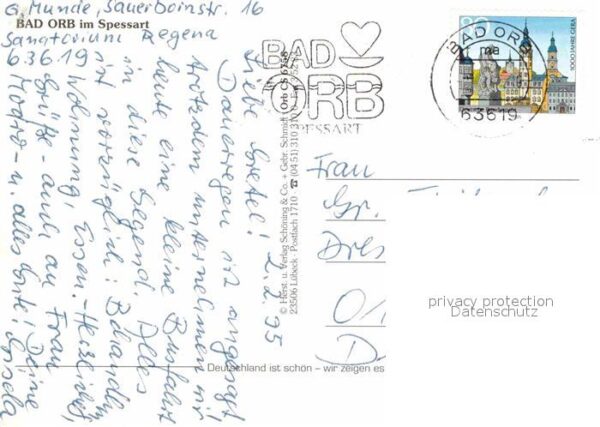 G. Munde, Sauerbornstr. 16
BAD ORB im Spessart
Sanatorium Regena
63619
Liebe Gretel! 2.2.95
Dauerregen ist angesagt
trotzdem unternehmen wir
heute eine kleine Busfahrt
in diese Gegend. Alles
ist vorzüglich: Behandlg
Wohnung, Essen.- Herzliche
Grüße - auch an Frau
u. alles Gute! Deine
Gisela
© Herst. u. Verlag Schöning & Co. + Gebr. Schmidt
23506 Lübeck · Postfach 1710 · ☎ (0451) 310310
Orb CS 6758
BAD
ORB
SPESSART
BAD ORB
me
63619
80
1000 JAHRE GERA
Frau
Gr.
Dres
privacy protection
Datenschutz
Deutschland ist schön – wir zeigen es